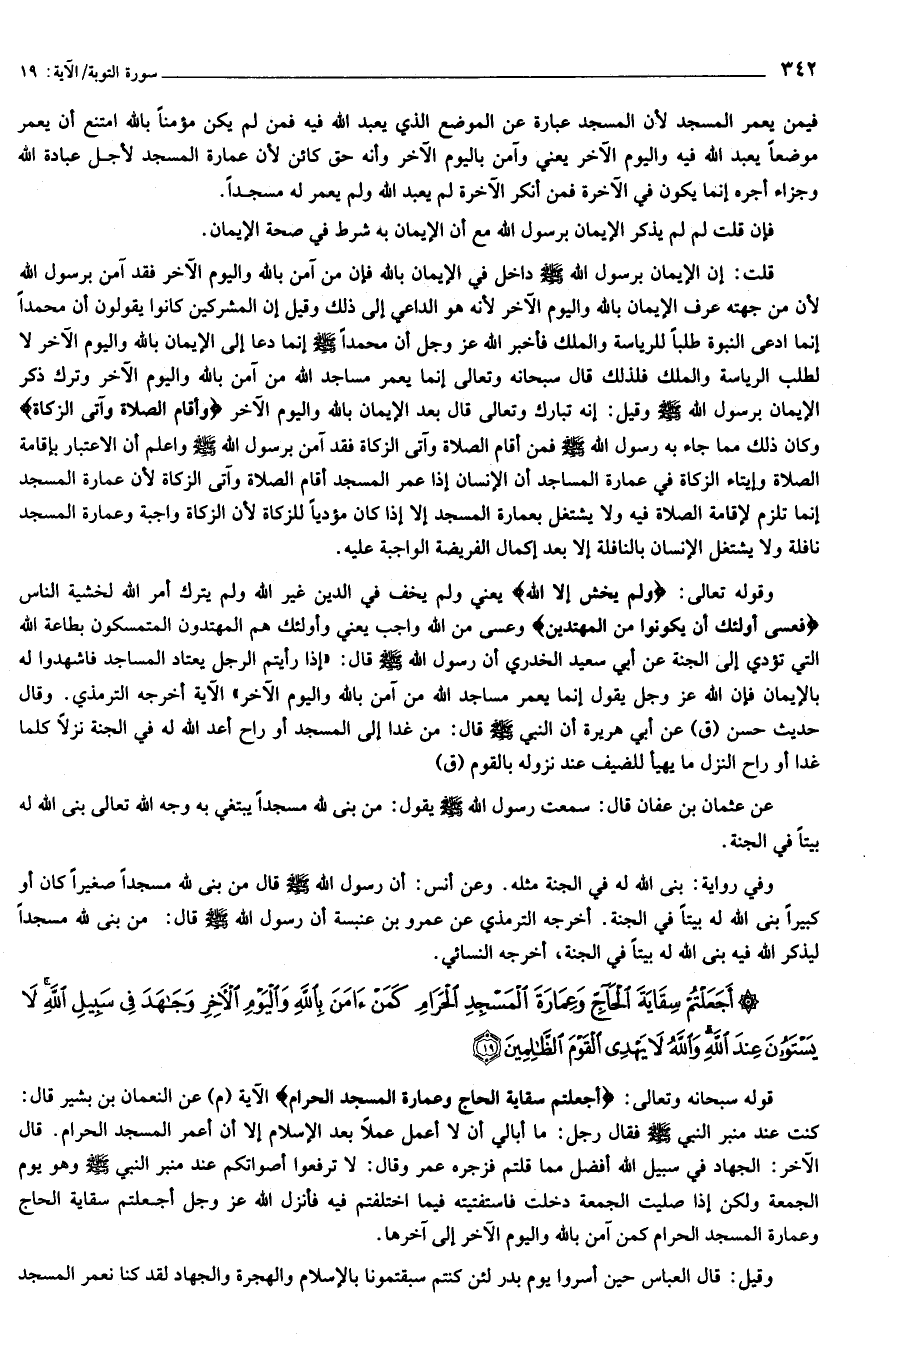 ٣٤٢ سورة التوبة/ الآية: ١٩
فيمن يعمر المسجد لأن المسجد عبارة عن الموضع الذي يعبد الله فيه فمن لم يكن مؤمناً بالله امتنع أن يعمر
موضعاً يعبد الله فيه واليوم الآخر يعني وآمن باليوم الآخر وأنه حق كائن لأن عمارة المسجد لأجل عبادة الله
وجزاء أجره إنما يكون في الآخرة فمن أنكر الآخرة لم يعبد الله ولم يعمر له مسجداً.
فإن قلت لم لم يذكر الإيمان برسول الله مع أن الإيمان به شرط في صحة الإيمان.
قلت: إن الإيمان برسول الله ﷺ داخل في الإيمان بالله فإن من آمن بالله واليوم الآخر فقد آمن برسول الله
لأن من جهته عرف الإيمان بالله واليوم الآخر لأنه هو الداعي إلى ذلك وقيل إن المشركين كانوا يقولون أن محمداً
إنما ادعى النبوة طلباً للرياسة والملك فأخبر الله عز وجل أن محمداً ﷺ إنما دعا إلى الإيمان بالله واليوم الآخر لا
لطلب الرياسة والملك فلذلك قال سبحانه وتعالى إنما يعمر مساجد الله من آمن بالله واليوم الآخر وترك ذكر
الإيمان برسول الله ﷺ وقيل: إنه تبارك وتعالى قال بعد الإيمان بالله واليوم الآخر ﴿وأقام الصلاة وآتى الزكاة﴾
وكان ذلك مما جاء به رسول الله ﷺ فمن أقام الصلاة وآتى الزكاة فقد آمن برسول الله ﷺ واعلم أن الاعتبار بإقامة
الصلاة وإيتاء الزكاة في عمارة المساجد أن الإنسان إذا عمر المسجد أقام الصلاة وآتى الزكاة لأن عمارة المسجد
إنما تلزم لإقامة الصلاة فيه ولا يشتغل بعمارة المسجد إلا إذا كان مؤدياً للزكاة لأن الزكاة واجبة وعمارة المسجد
نافلة ولا يشتغل الإنسان بالنافلة إلا بعد إكمال الفريضة الواجبة عليه.
وقوله تعالى: ﴿ولم يخش إلا الله﴾ يعني ولم يخف في الدين غير الله ولم يترك أمر الله لخشية الناس
﴿فعسى أولئك أن يكونوا من المهتدين﴾ وعسى من الله واجب يعني وأولئك هم المهتدون المتمسكون بطاعة الله
التي تؤدي إلى الجنة عن أبي سعيد الخدري أن رسول الله ﷺ قال: «إذا رأيتم الرجل يعتاد المساجد فاشهدوا له
بالإيمان فإن الله عز وجل يقول إنما يعمر مساجد الله من آمن بالله واليوم الآخر» الآية أخرجه الترمذي. وقال
حديث حسن (ق) عن أبي هريرة أن النبي ﷺ قال: من غدا إلى المسجد أو راح أعد الله له في الجنة نزلاً كلما
غدا أو راح النزل ما يهيأ للضيف عند نزوله بالقوم (ق)
عن عثمان بن عفان قال: سمعت رسول الله ﷺ يقول: من بنى لله مسجداً يبتغي به وجه الله تعالى بنى الله له
بيتاً في الجنة.
وفي رواية: بنى الله له في الجنة مثله. وعن أنس: أن رسول الله ﷺ قال من بنى لله مسجداً صغيراً كان أو
كبيراً بنى الله له بيتاً في الجنة. أخرجه الترمذي عن عمرو بن عنبسة أن رسول الله ﷺ قال: من بنى لله مسجداً
ليذكر الله فيه بنى الله له بيتاً في الجنة، أخرجه النسائي.
۞ أَجَعَلْتُمْ سِقَايَةَ الْحَآجِّ وَعِمَارَةَ الْمَسْجِدِ الْحَرَامِ كَمَنْ ءَامَنَ بِاللَّهِ وَالْيَوْمِ الْآخِرِ وَجَٰهَدَ فِي سَبِيلِ اللَّهِ ۚ لَا
يَسْتَوُۥنَ عِندَ اللَّهِ ۗ وَاللَّهُ لَا يَهْدِي الْقَوْمَ الظَّٰلِمِينَ ١٩
قوله سبحانه وتعالى: ﴿أجعلتم سقاية الحاج وعمارة المسجد الحرام﴾ الآية (م) عن النعمان بن بشير قال:
كنت عند منبر النبي ﷺ فقال رجل: ما أبالي أن لا أعمل عملاً بعد الإسلام إلا أن أعمر المسجد الحرام. قال
الآخر: الجهاد في سبيل الله أفضل مما قلتم فزجره عمر وقال: لا ترفعوا أصواتكم عند منبر النبي ﷺ وهو يوم
الجمعة ولكن إذا صليت الجمعة دخلت فاستفتيته فيما اختلفتم فيه فأنزل الله عز وجل أجعلتم سقاية الحاج
وعمارة المسجد الحرام كمن آمن بالله واليوم الآخر إلى آخرها.
وقيل: قال العباس حين أسروا يوم بدر لئن كنتم سبقتمونا بالإسلام والهجرة والجهاد لقد كنا نعمر المسجد